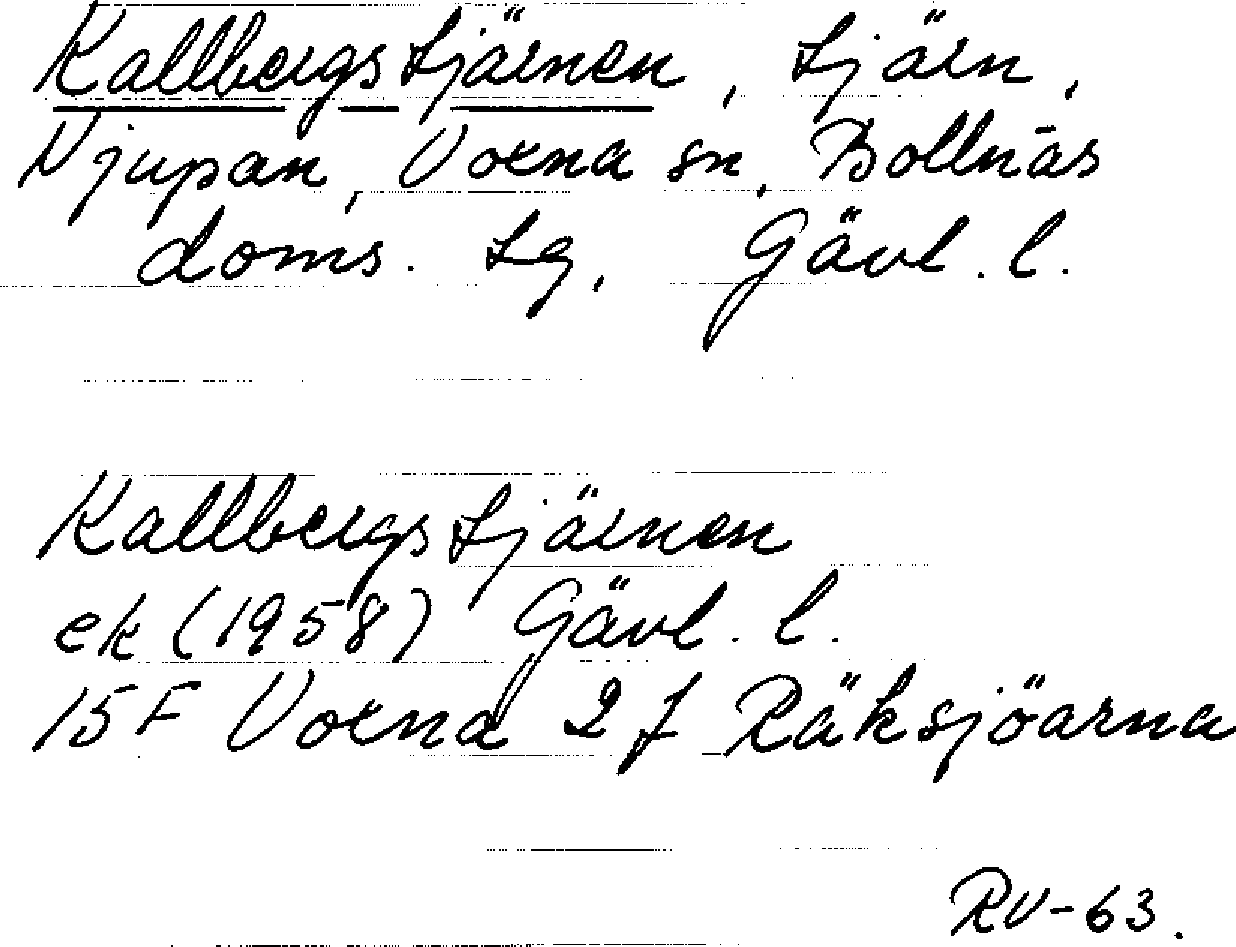 Kallbergstjärnen, tjärn,
Njupan, Voxna sn, Bollnäs
doms. tg, Gävl. l.
Kallbergstjärnen
ek (1958) Gävl. l.
15F Voxna 2f Räksjöarna
RV-63.